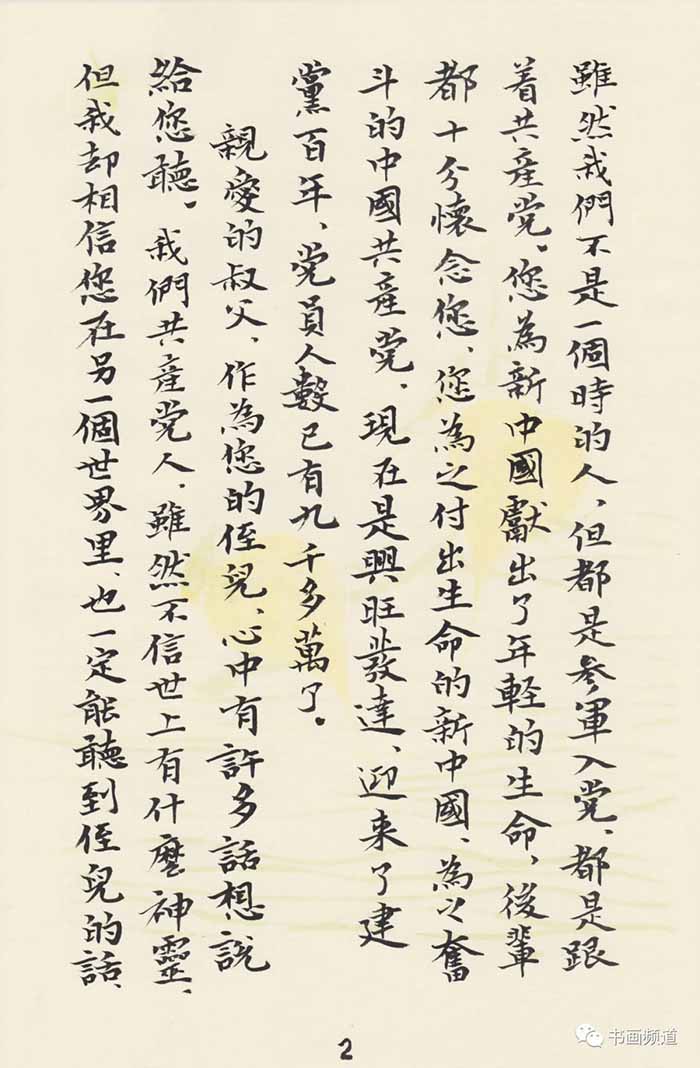 雖然我們不是一個時的人，但都是參軍入党、都是跟
着共產党。您為新中國獻出了年輕的生命，後輩
都十分懷念您、您為之付出生命的新中國、為之奮
斗的中國共產党、現在是興旺發達、迎来了建
黨百年、党員人數已有九千多萬了。
親愛的叔父、作為您的侄兒、心中有許多話想説
給您聽。我們共產党人、雖然不信世上有什麼神靈、
但我却相信您在另一個世界里、也一定能聽到侄兒的話、
2
书画频道